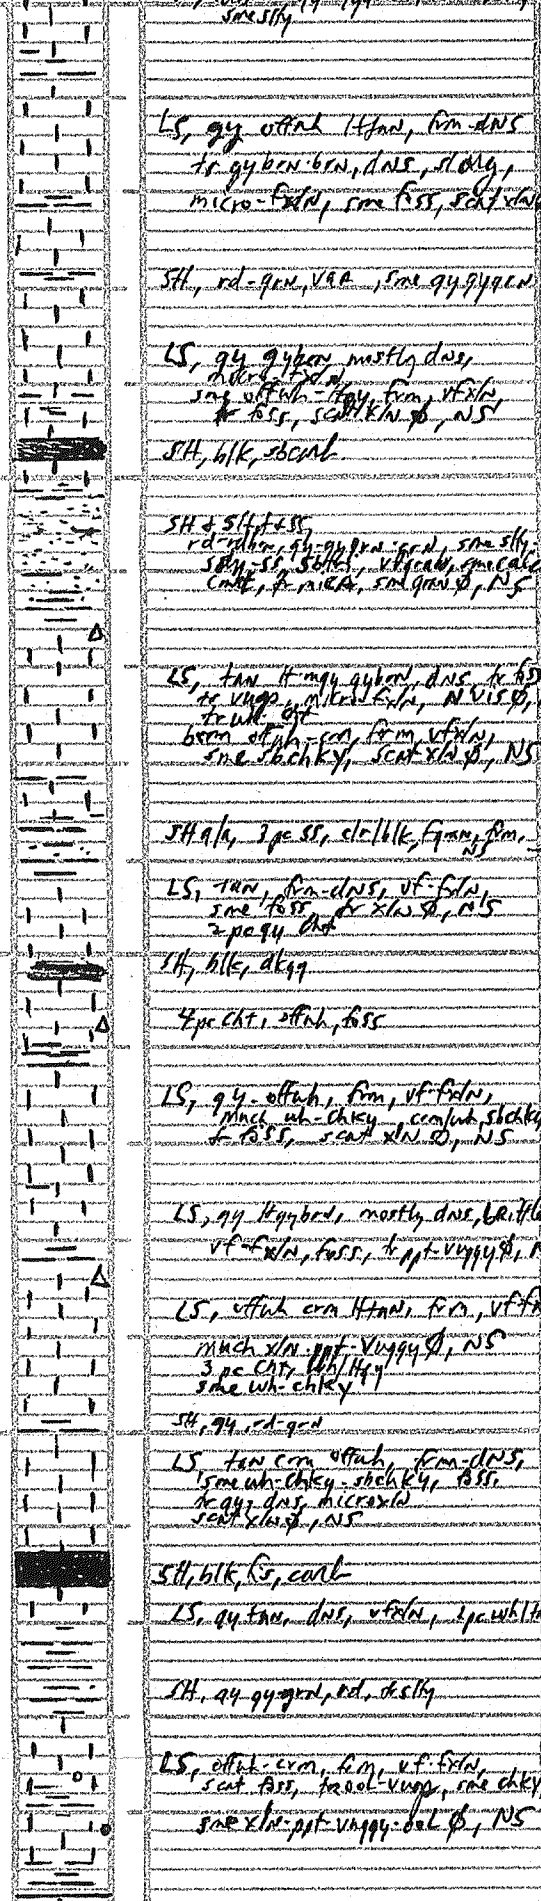 smeslty
LS, gy offwh ltTAN, frm-dNS
tr gybrN-brN, dNS, sl arg,
micro-fxlN, sme foss, scat xlN
SH, rd-grN, VAR, sme gy gygrN
LS, gy gybrN mostly dNS,
micro-fxlN
sme offwh-ltgy, frm, vfxlN,
tr foss, scat xlN ϕ, NS
SH, blk, sbcarb
SH & Slt + SS,
rd-mbrn, gy-gygrN-grN, sme slty-
sdy-ss,
cmt, tr micA, sme grN ϕ, NS
LS, tAN lt-mgy gybrN, dNS tr foss
tr vugs, micro-fxlN, N Vis ϕ,
tr wh cht
bcm offwh-crm, frm, vfxlN,
sme sbchky, scat xlN ϕ, NS
SH a/a, 3 pc SS, clr/blk, fgrN, frm,
NS
LS, TAN, frm-dNS, vf-fxlN,
sme foss, tr xlN ϕ, NS
2 pc gy Cht
SH, blk, dkgy
4 pc Cht, offwh, foss
LS, gy-offwh, frm, vf-fxlN,
much wh-chky, crm/wh, sbchky
tr foss, scat xlN ϕ, NS
LS, gy ltgybrN, mostly dNS, brittle
vf-fxlN, foss, tr ppt-vuggy ϕ, N
LS, offwh crm ltTAN, frm, vf-fx
much xlN-ppt-vuggy ϕ, NS
3 pc Cht, wh/ltgy
sme wh-chky
SH, gy, rd-grN
LS, tAN crm offwh, frm-dNS,
sme wh-chky-sbchky, foss,
tr gy, dNS, microxlN
scat xlN ϕ, NS
SH, blk, fis, carb
LS, gy tAN, dNS, vfxlN, 1 pc wh/t
SH, gy gy-grN, rd, slty
LS, offwh-crm, frm, vf-fxlN,
scat foss, tr ool-vugs, sme chky
sme xlN-ppt-vuggy-ool ϕ, NS